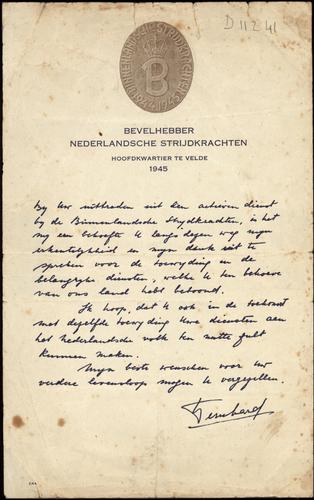 D 1124I
BINNENLANDSCHE STRIJDKRACHTEN
B
1944 1945
BEVELHEBBER
NEDERLANDSCHE STRIJDKRACHTEN
HOOFDKWARTIER TE VELDE
1945
Bij Uw uittreden uit den actieven dienst
bij de Binnenlandsche Strijdkrachten, is het
mij een behoefte U langs dezen weg mijn
erkentelijkheid en mijn dank uit te
spreken voor de toewijding en de
belangrijke diensten, welke U ten behoeve
van ons land hebt betoond.
Ik hoop, dat U ook in de toekomst
met dezelfde toewijding Uwe diensten aan
het Nederlandsche volk ten nutte zult
kunnen maken.
Mijn beste wenschen voor Uw
verdere levensloop mogen U vergezellen.
Bernhard